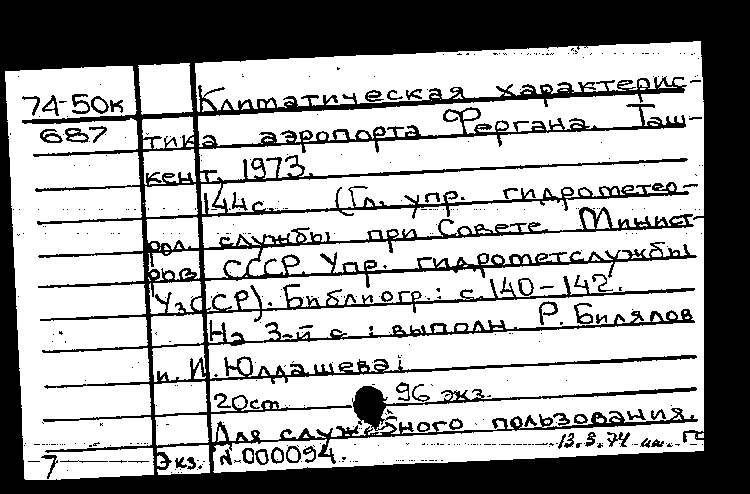 74-50к Климатическая характерис-
687 тика аэропорта Фергана. Таш-
кент, 1973.
144с. (Гл. упр. гидрометео-
рол. службы при Совете Минист-
ров СССР. Упр. гидрометслужбы
УзССР). Библиогр.: с.140-142.
На 3-й с: выполн. Р. Билялов
и И. Юлдашева;
20см. 96 экз.
Для служебного пользования.
13.3.74
7 Экз. N 000094.